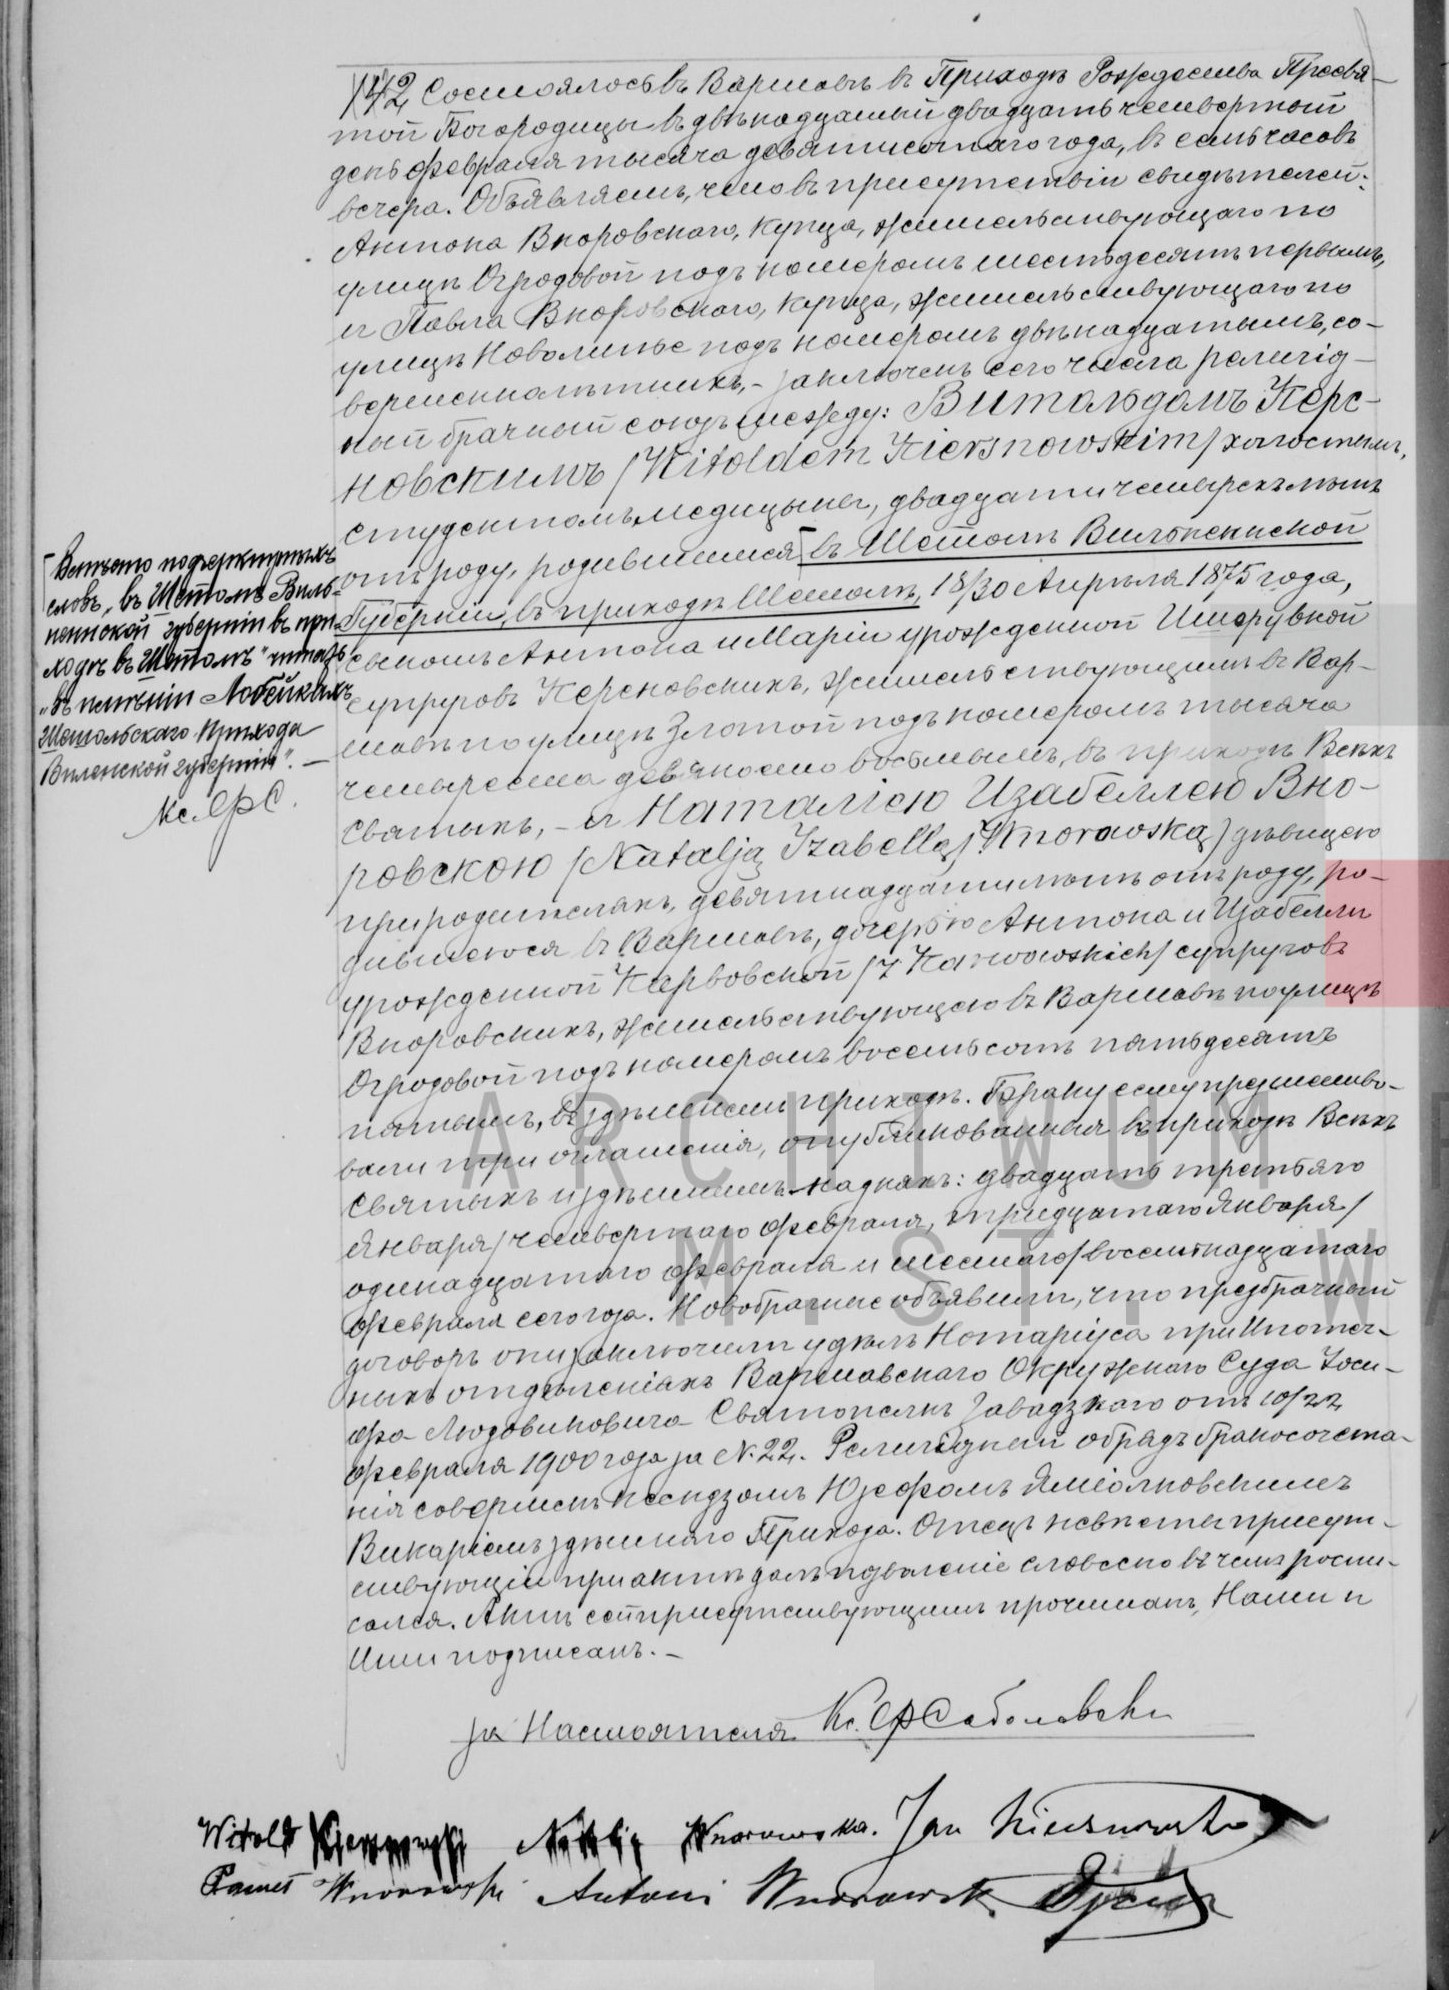 142 Состоялось въ Варшавѣ въ Приходѣ Рождества Пресвя-
той Богородицы въ двѣнадцатый двадцать четвертый
день февраля тысяча девятисотаго года, въ семь часовъ
вечера. Объявляемъ, что въ присутствіи свидѣтелей:
Антона Вноровскаго, купца, жительствующаго по
улицѣ Огродовой подъ номеромъ шестьдесятъ первымъ,
и Павла Вноровскаго, купца, жительствующаго по
улицѣ Новолипье подъ номеромъ двѣнадцатымъ, со-
вершеннолѣтнихъ, - заключенъ сего числа религіоз-
ный брачный союзъ между: Витольдомъ Керс-
новскимъ /Witoldem Kiersnowskim/ холостымъ,
студентомъ медицины, двадцати четырехъ лѣтъ
отъ роду, родившимся въ Шетолѣ Виленской
Губерніи, въ приходѣ Шетолѣ, 18/30 Апрѣля 1875 года,
сыномъ Антона и Маріи урожденной
супруговъ Керсновскихъ, жительствующимъ въ Вар-
шавѣ по улицѣ Златой подъ номеромъ тысяча
четыреста девяносто восьмымъ, въ приходѣ Всѣхъ
Святыхъ, - и Наталіею Изабеллею Вно-
ровскою /Natalją Izabellą Wnorowską/ дѣвицею
при родителяхъ, девятнадцати лѣтъ отъ роду, ро-
дившеюся въ Варшавѣ, дочерью Антона и Изабелли
урожденной Карвовской /z Karwowskich/ супруговъ
Вноровскихъ, жительствующею въ Варшавѣ по улицѣ
Огродовой подъ номеромъ восемьсотъ пятьдесятъ
пятымъ, въ здѣшнемъ приходѣ. Браку сему предшество-
вали три оглашенія, опубликованныя въ приходѣ Всѣхъ
Святыхъ и здѣшнемъ надняхъ: двадцать третьяго
Января/четвертаго февраля, тридцатаго Января/
одинадцатаго февраля и шестаго/восемнадцатаго
февраля сего года. Новобрачные объявили, что предбрачный
договоръ они заключили у дѣлъ Нотаріуса при Ипотеч-
ныхъ отдѣленіяхъ Варшавскаго Окружнаго Суда Іоси-
фа Людвиковича Святополкъ Завадзкаго отъ 10/22
февраля 1900 года за N. 22. Религіозный обрядъ бракосочета-
нія совершенъ Ксендзомъ Юзефомъ Яміолковскимъ
Викаріемъ здѣшняго Прихода. Отецъ невѣсты присут-
ствующій при актѣ далъ позволеніе словесно въ чемъ роспи-
сался. Актъ сей присутствующимъ прочитанъ, Нами и
Ими подписанъ. -
за Настоятеля Кс.
Witold Kiersnowski Natalia Wnorowska. Jan Kiersnowski
Paweł Wnorowski Antoni Wnorowski Ojciec
Вмѣсто подчеркнутыхъ
словъ „въ Шетолѣ Виль-
ненской губерніи въ при-
ходѣ въ Шетолѣ" читать
„въ имѣніи Лобейкахъ
Шетольскаго Прихода
Виленской губерніи". -
Кс. Ф С.
ARCHIWUM
M. ST. WA